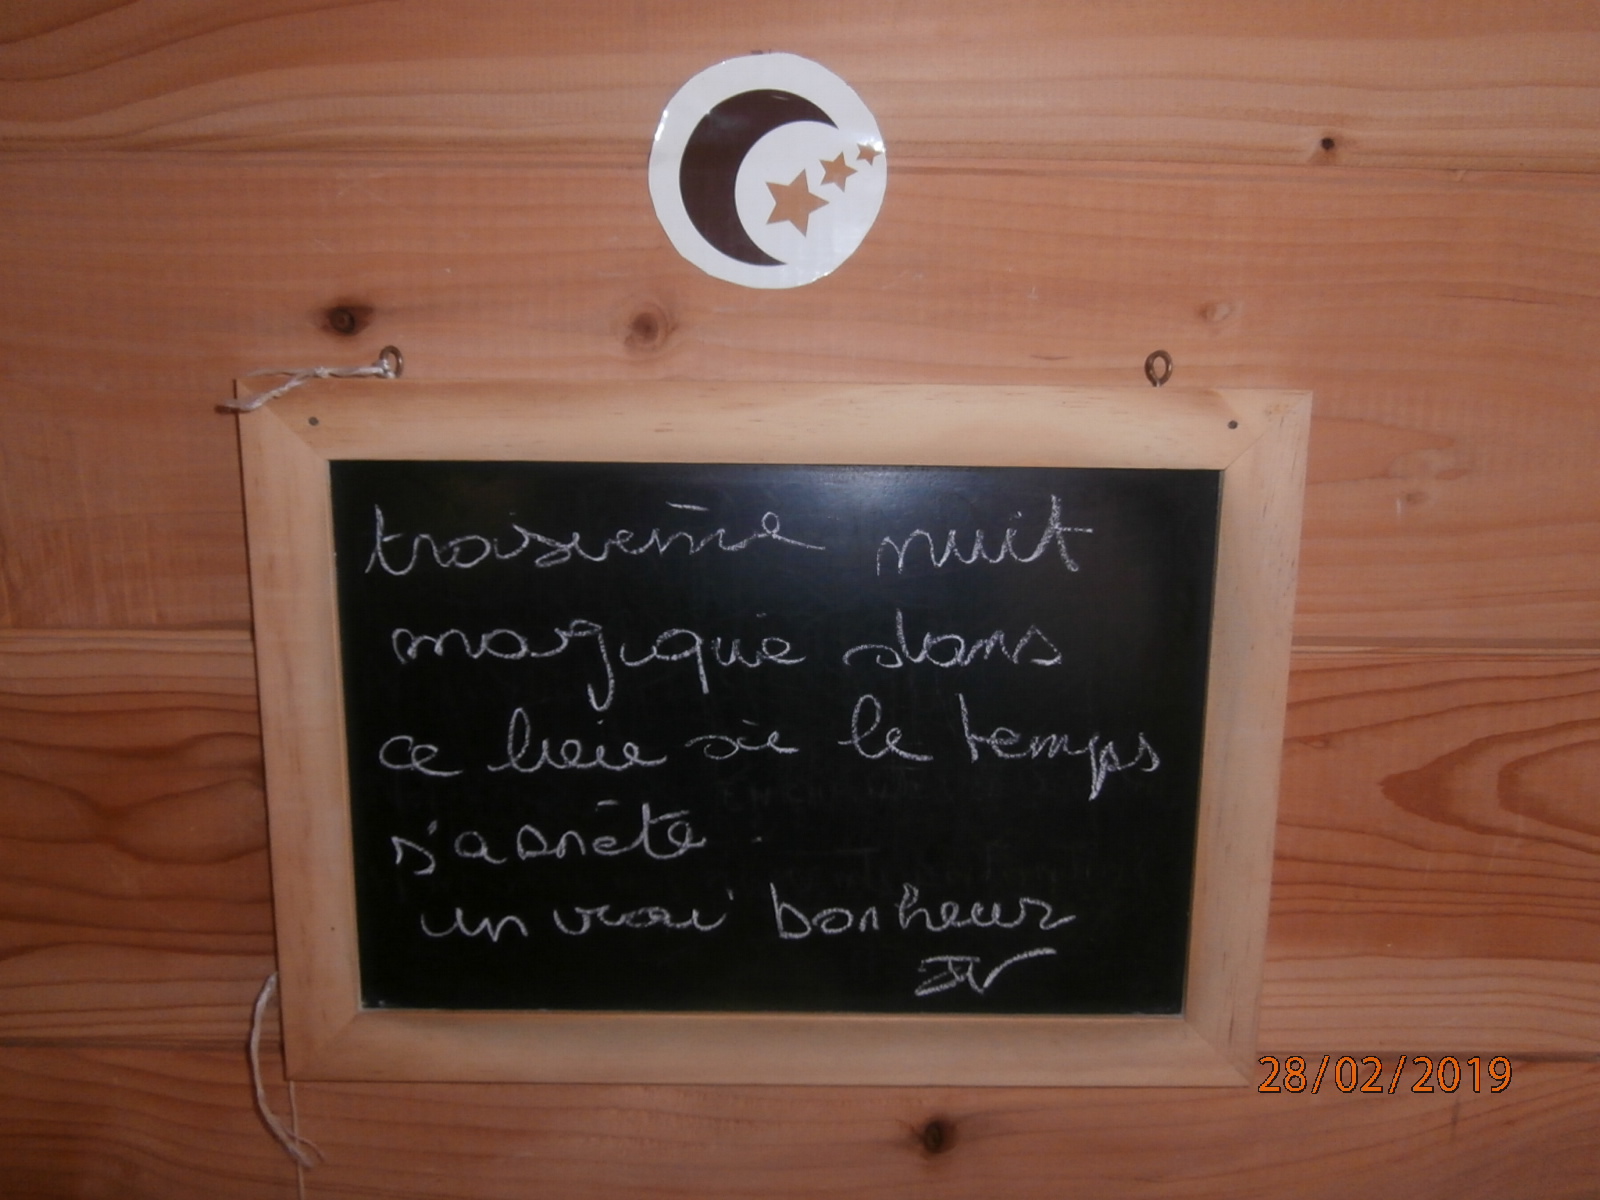 troisième nuit
magique dans
ce lieu où le temps
s'arrête.
un vrai bonheur
JV
28/02/2019